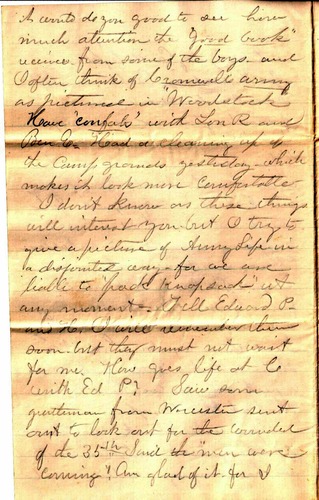 It would do you good to see how
much attention the "good book"
receives from some of the boys. and
I often think of Cromwells army
as pictured in "Woodstock"
Have "confabs" with Lon R and
Ben C- Had a cleaning up of
the Camp grounds yesterday - which
makes it look more comfortable
I don't know as these things
will interest you but I try to
give a picture of Army Life in
a disjointed way - for we are
liable to pack knapsacks at
any moment - Tell Edward P-
and I will remember them
soon - but they must not wait
for me. How goes life at Co
with Ed P? Saw some
gentleman from Worcester sent
out to look out for the wounded
of the 35th Said the "men were
coming"! Am glad of it for I